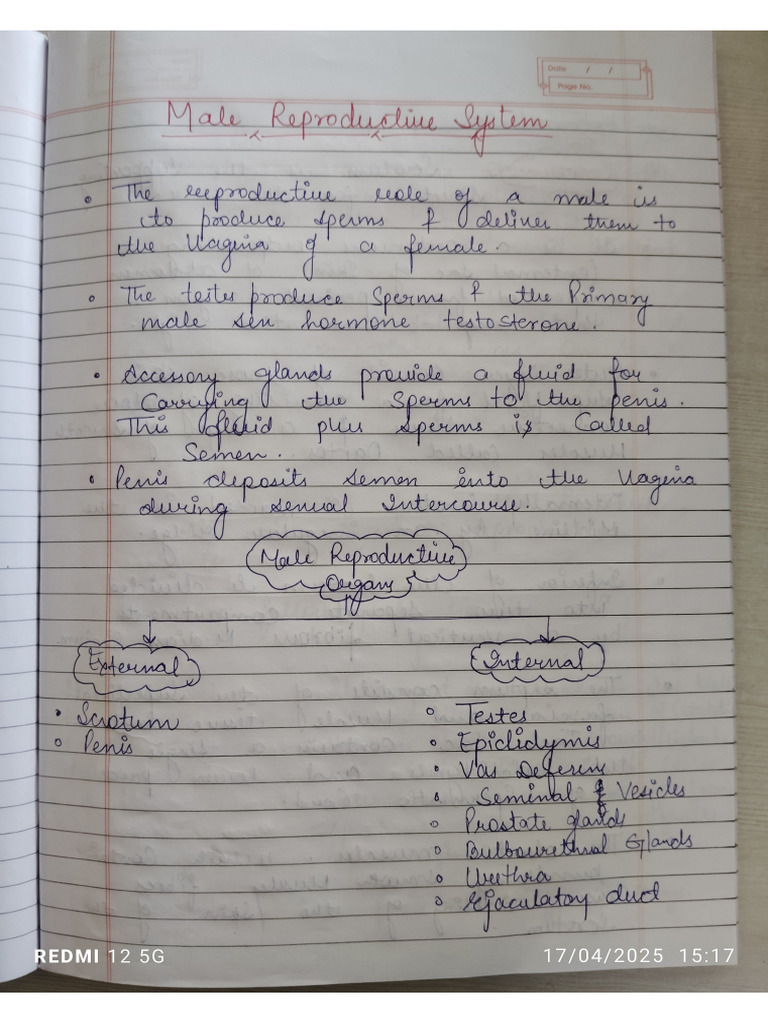 Date / /
Page No.
Male Reproductive System
The reproductive role of a male is
to produce sperms & deliver them to
the Vagina of a female.
The testes produce Sperms & the Primary
male sex hormone testosterone.
Accessory glands provide a fluid for
Carrying the Sperms to the penis.
This fluid plus sperms is Called
Semen.
Penis deposits semen into the Vagina
during sexual Intercourse.
Male Reproductive
Organs
External
Internal
• Scrotum
• Penis
• Testes
• Epididymis
• Vas Deferens
• Seminal Vesicles
• Prostate glands
• Bulbourethral Glands
• Urethra
• Ejaculatory duct
REDMI 12 5G
17/04/2025 15:17